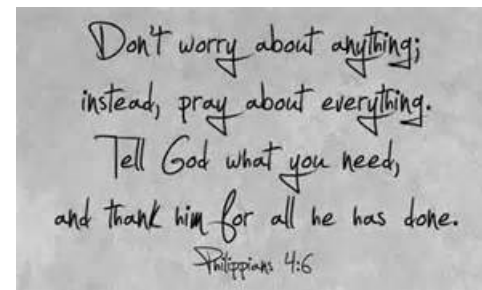 Don't worry about anything;
instead, pray about everything.
Tell God what you need,
and thank him for all he has done.
Philippians 4:6